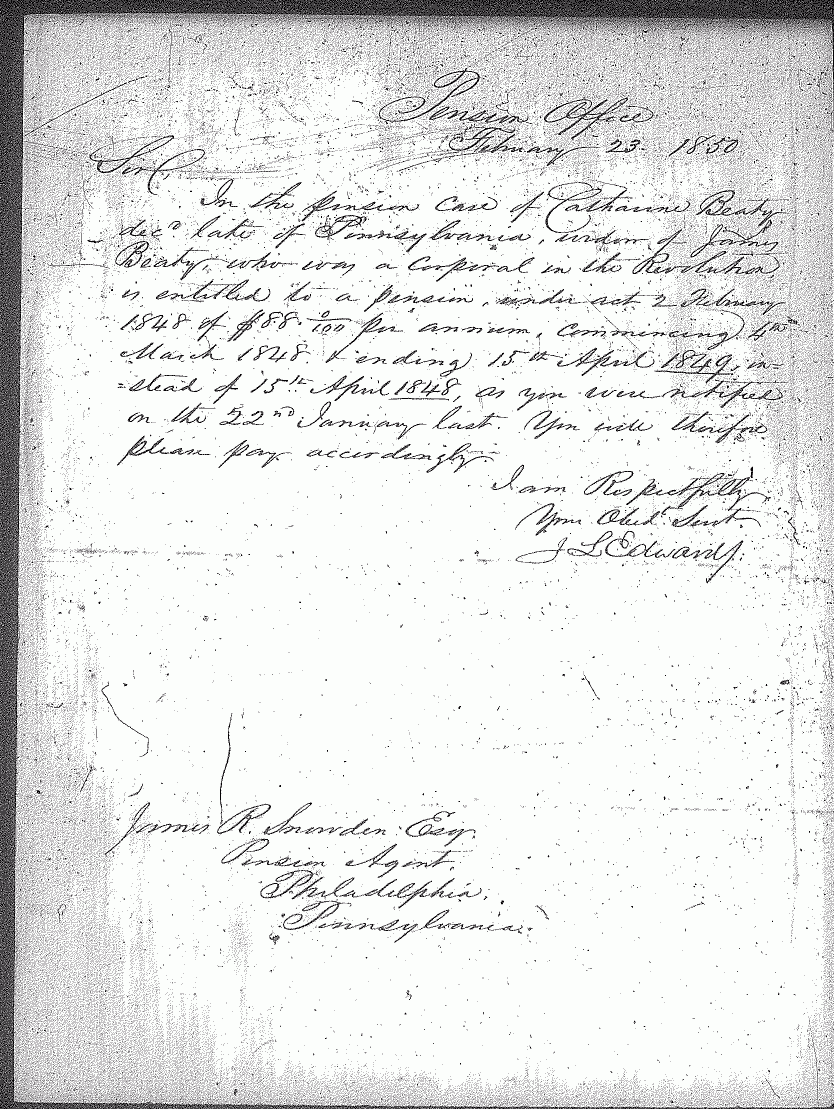 Pension Office
February 23. 1850
Sir,
In the pension case of Catharine Beaty
decd late of Pennsylvania, widow of James
Beaty, who was a corporal in the Revolution,
is entitled to a pension, under act 2 February
1848 of $88. 0/100 per annum, commencing 4th
March 1848 & ending 15th April 1849, in-
=stead of 15th April 1848, as you were notified
on the 22nd January last. You will therefore
please pay accordingly.
I am Respectfully
Your Obedt Servt.
J L Edwards.
James R. Snowden Esq.
Pension Agent.
Philadelphia.
Pennsylvania.